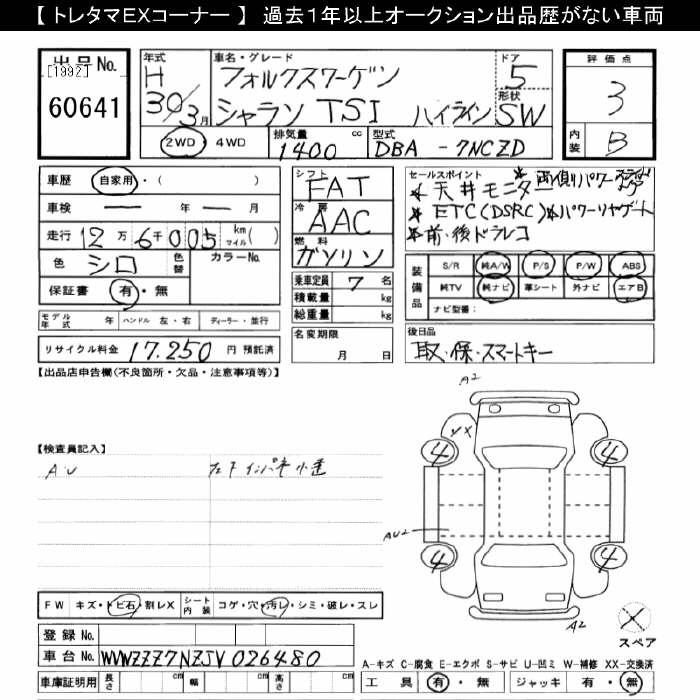 【 トレタマEXコーナー 】 過去1年以上オークション出品歴がない車両
出品No.
[1992]
60641
年式
H
30/3月
車名・グレード
フォルクスワーゲン
シャラン TSI ハイライン
ドア
5
形状
SW
2WD・4WD
排気量
1400 cc
型式
DBA - 7NCZD
評価点
3
内装
B
車歴 自家用・( )
車検 ー 年 ー 月
走行 12万6千005 km マイル( )
色 シロ 色替 カラーNo.
保証書 有・無
シフト
FAT
冷房
AAC
燃料
ガソリン
乗車定員 7 名
積載量 kg
総重量 kg
セールスポイント
* 天井モニタ * 両側パワースライドドア
* ETC(DSRC) * パワーリヤゲート
* 前・後ドラレコ
装備品
S/R 純A/W P/S P/W ABS
純TV 純ナビ 革シート 外ナビ エアB
ナビ型番:
モデル年式 年 ハンドル 左・右 ディーラー・並行
名変期限
月 日
後日品
取・保・スマートキー
リサイクル料金 17.250 円 預託済
【出品店申告欄(不良箇所・欠品・注意事項等)】
【検査員記入】
A・U
A2
XX
4
4
AU2
4
4
A2
スペア
FW キズ・トビ石・割レX シート内装 コゲ・穴・汚レ・シミ・破レ・スレ
登録No.
車台No. WVWZZZ7NZJV026480
車庫証明用 長さ cm 幅 cm 高さ cm
A-キズ C-腐食 E-エクボ S-サビ U-凹ミ W-補修 XX-交換済
工具 有・無 ジャッキ 有・無